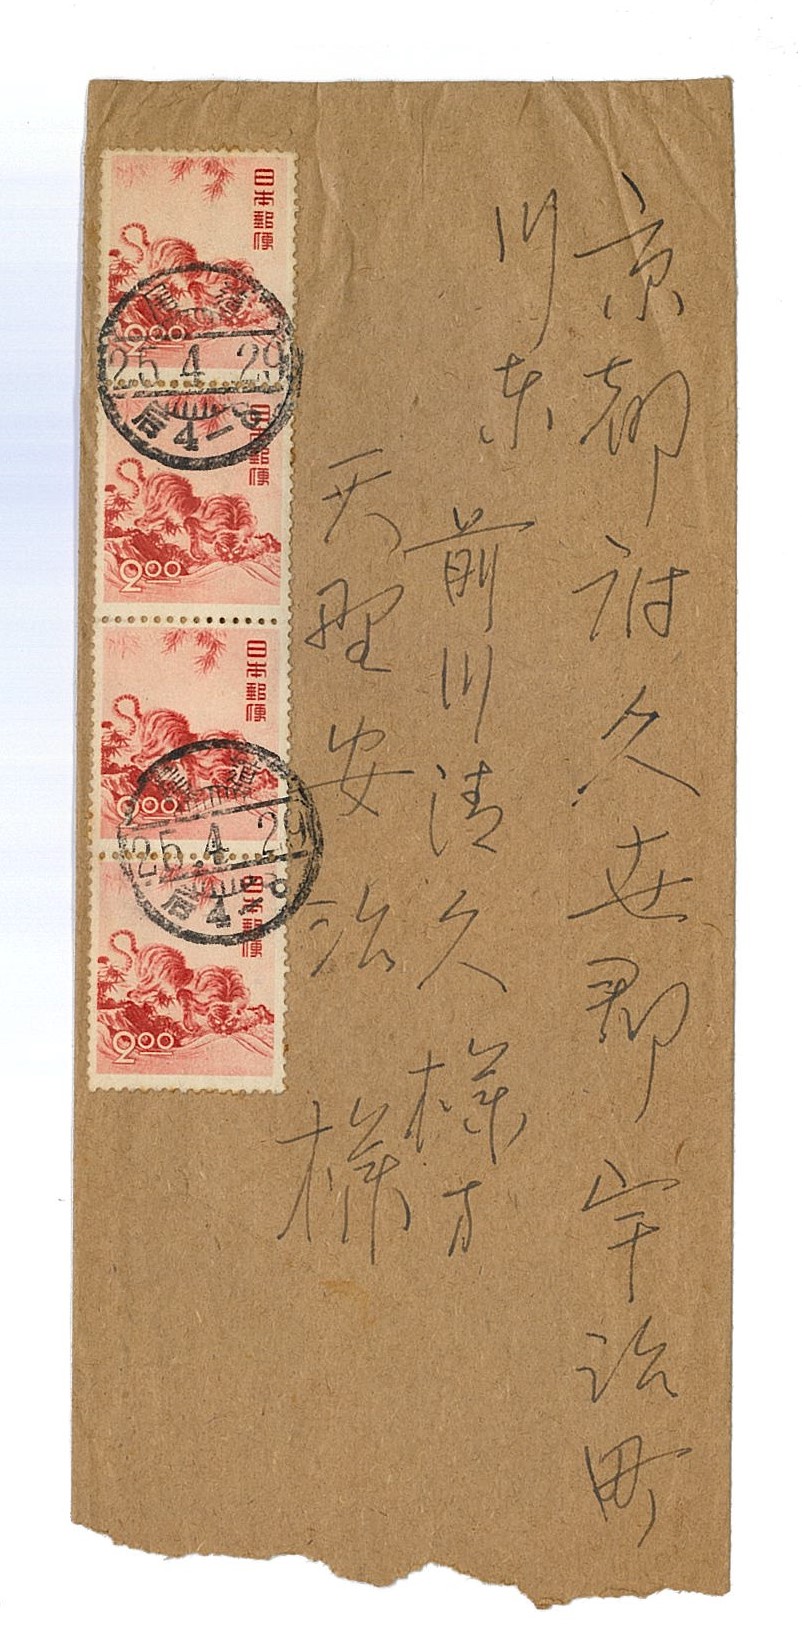 京都府久世郡宇治町
川東
前川清久様方
天野安治様
日本郵便
2.00
日本郵便
2.00
日本郵便
2.00
日本郵便
2.00
尾道
25.4.29
后4-8
25.4.29
后4-8